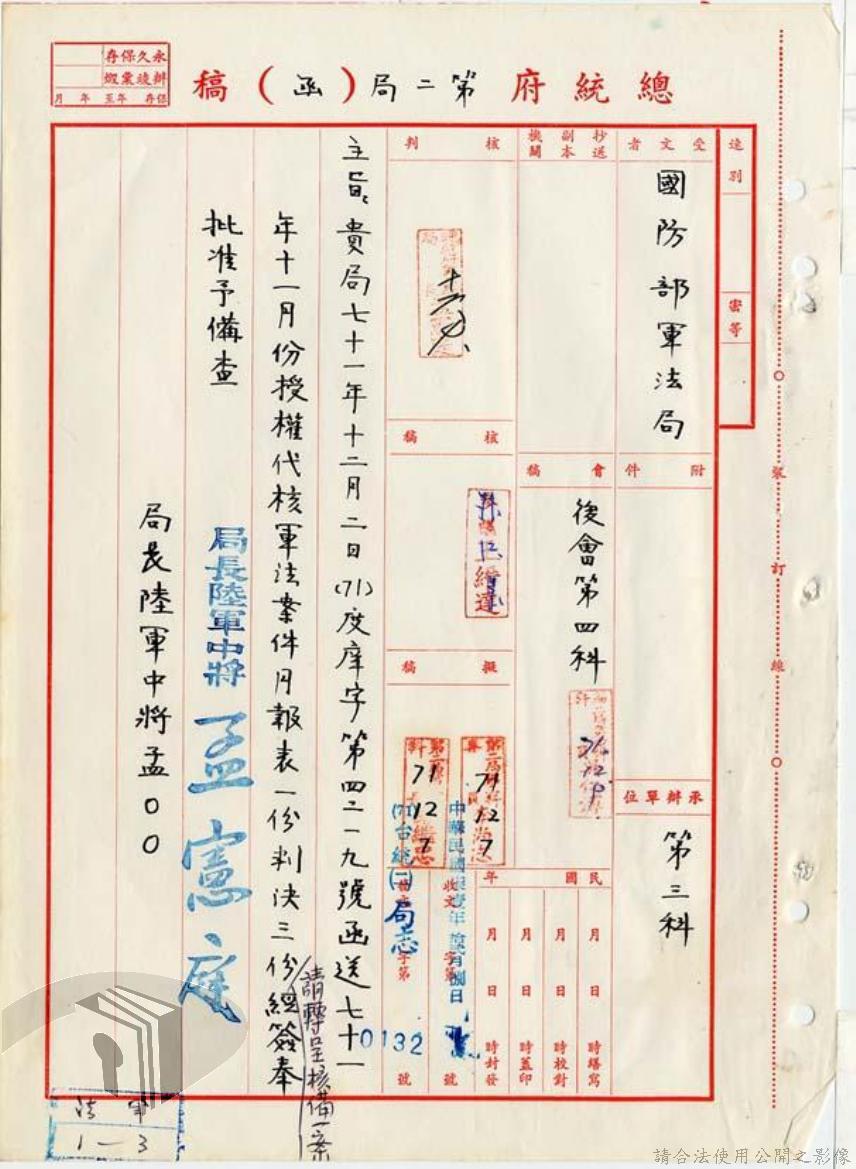 總統府第二局（函）稿
永久保存
辦後彙繳
保存 年至 年 月
速別
密等
受文者
國防部軍法局
附件
承辦單位
第三科
抄送副本機關
會稿
後會第四科
71.12.8.
民國 年
月 日 時繕寫
月 日 時校對
月 日 時蓋印
月 日 時封發
核判
核稿
擬稿
71
12
7
71
12
7
中華民國
收文 字第 號
(71)台統(二)局志
發文 字第 號
0132
主旨：貴局七十一年十二月二日(71)度庠字第四二一九號函送七十一
年十一月份授權代核軍法案件月報表一份判決三份請轉呈核備一案經簽奉
批准予備查
局長陸軍中將 孟憲庭
局長陸軍中將孟○○
裝訂線
1—3
請合法使用公開之影像